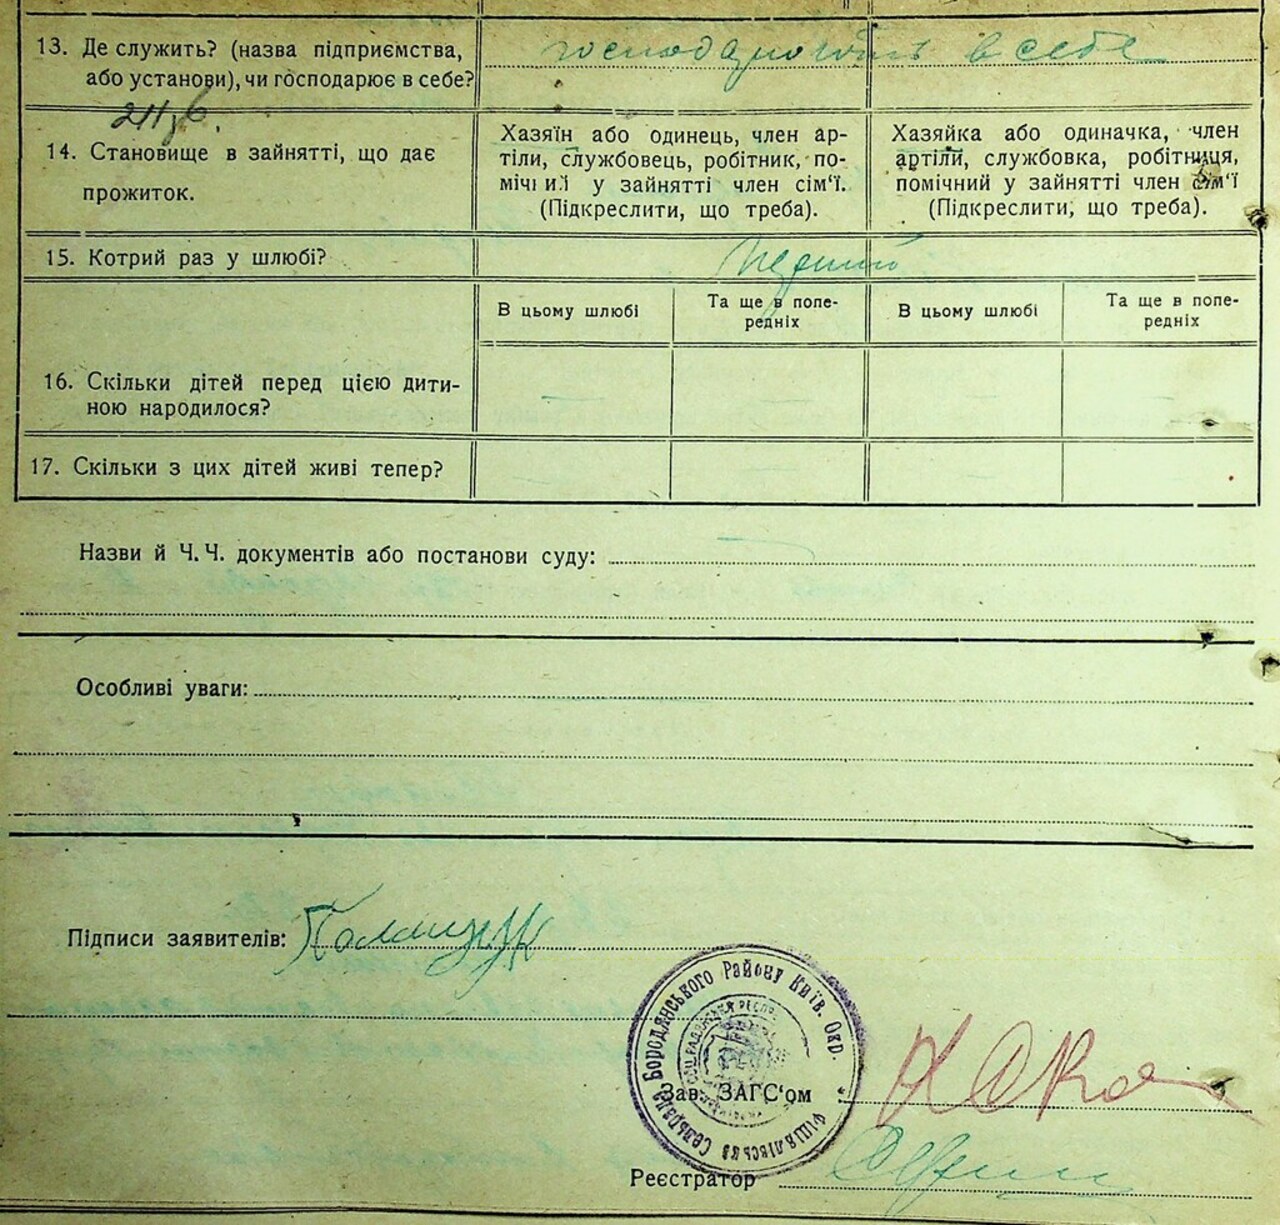 13. Де служить? (назва підприємства,
або установи), чи господарює в себе?
в себе
14. Становище в зайнятті, що дає
прожиток.
Хазяїн або одинець, член ар-
тіли, службовець, робітник, по-
мічний у зайнятті член сім‘ї.
(Підкреслити, що треба).
Хазяйка або одиначка, член
артіли, службовка, робітниця,
помічний у зайнятті член сім‘ї
(Підкреслити, що треба).
15. Котрий раз у шлюбі?
Перший
В цьому шлюбі
Та ще в попе-
редніх
В цьому шлюбі
Та ще в попе-
редніх
16. Скільки дітей перед цією дити-
ною народилося?
17. Скільки з цих дітей живі тепер?
Назви й Ч. Ч. документів або постанови суду:
Особливі уваги:
Підписи заявителів:
Бородянського Району Київ. Окр.
Сельрада
Зав. ЗАГС‘ом
Реєстратор